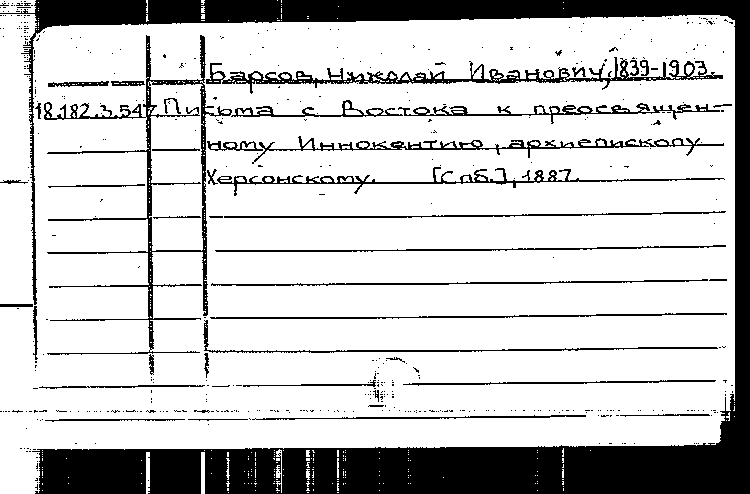 Барсов, Николай Иванович, 1839-1903.
18.182.3.547. Письма с Востока к преосвящен-
ному Иннокентию, архиепископу
Херсонскому. [Спб.], 1887.